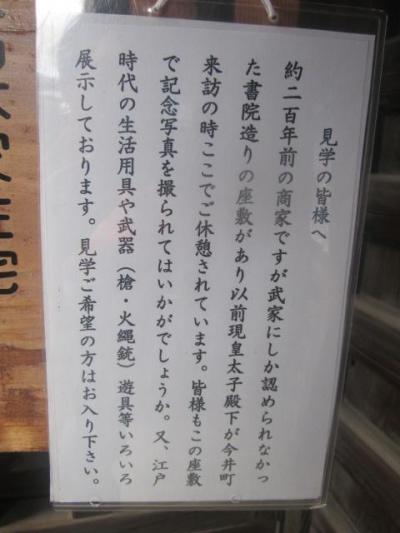 見学の皆様へ
約二百年前の商家ですが武家にしか認められなかっ
た書院造りの座敷があり以前現皇太子殿下が今井町
来訪の時ここでご休憩されています。皆様もこの座敷
で記念写真を撮られてはいかがでしょうか。又、江戸
時代の生活用具や武器（槍・火縄銃）遊具等いろいろ
展示しております。見学ご希望の方はお入り下さい。